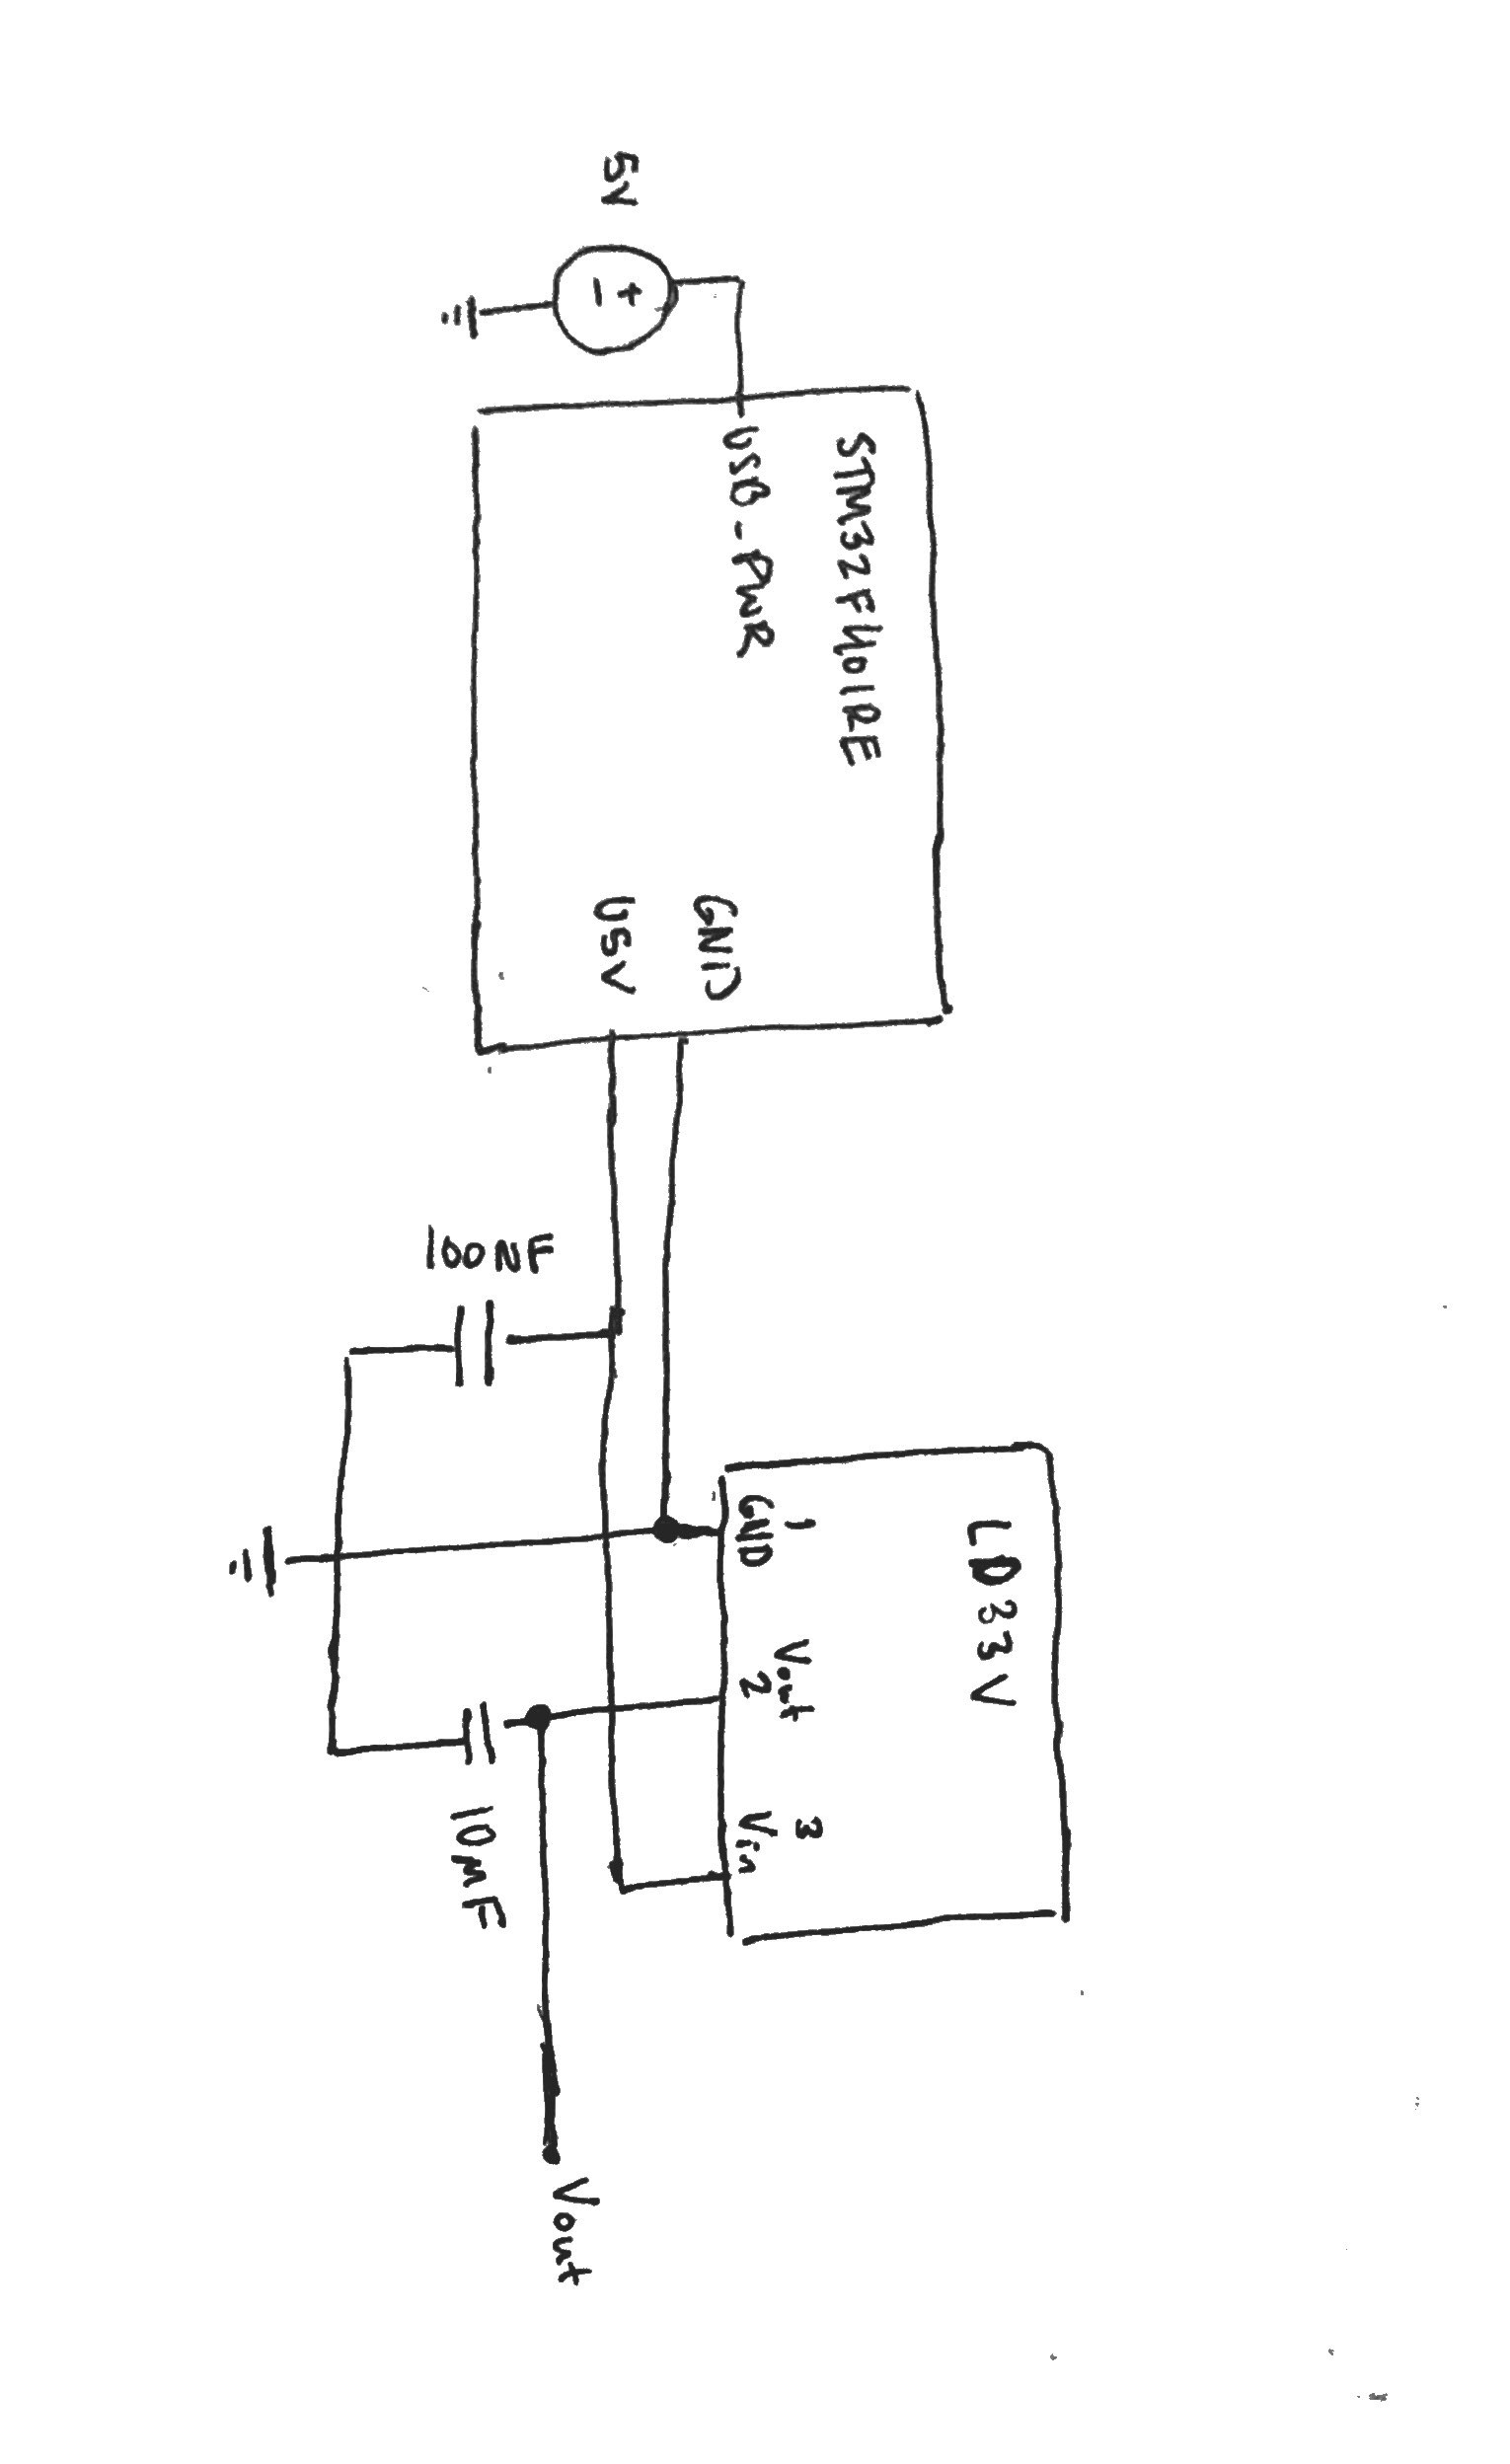 5V
+
-
STM32F401RE
USB-PWR
GND
U5V
100NF
LD33V
1
GND
Vout
2
3
Vin
10μF
Vout